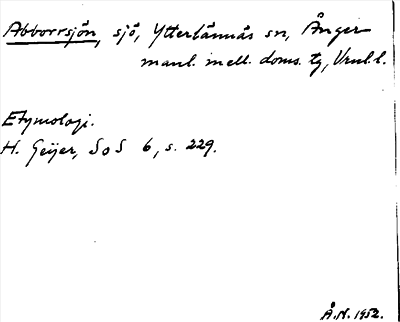 Abborrsjön, sjö, Ytterlännäs sn, Ånger
manl. mell. doms. tg, Vnl. l.
Etymologi.
H. Geijer, SoS 6, s. 229.
Å.N. 1952.